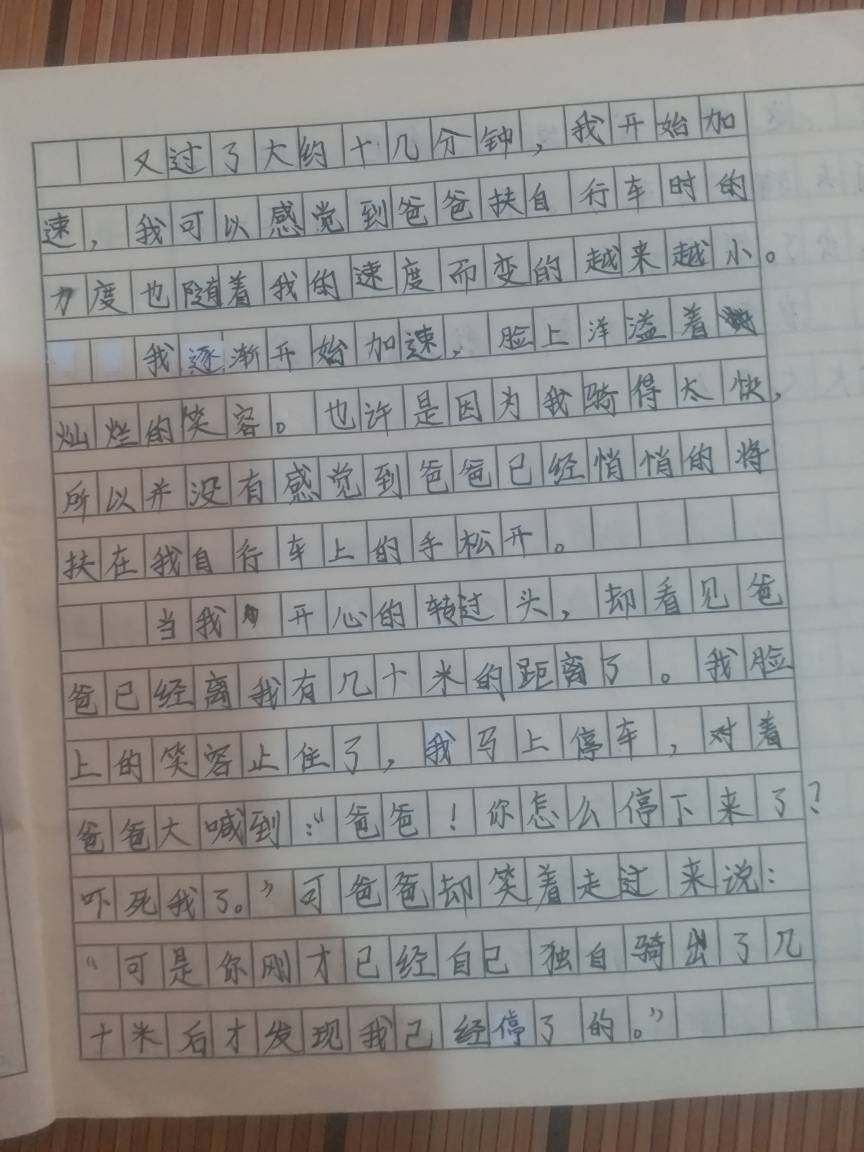 又过了大约十几分钟，我开始加
速，我可以感觉到爸爸扶自行车时的
力度也随着我的速度而变的越来越小。
我逐渐开始加速，脸上洋溢着
灿烂的笑容。也许是因为我骑得太快，
所以并没有感觉到爸爸已经悄悄的将
扶在我自行车上的手松开。
当我开心的转过头，却看见爸
爸已经离我有几十米的距离了。我脸
上的笑容止住了，我马上停车，对着
爸爸大喊到：“爸爸！你怎么停下来了？
吓死我了。”可爸爸却笑着走过来说：
“可是你刚才已经自己独自骑出了几
十米后才发现我已经停了的。”